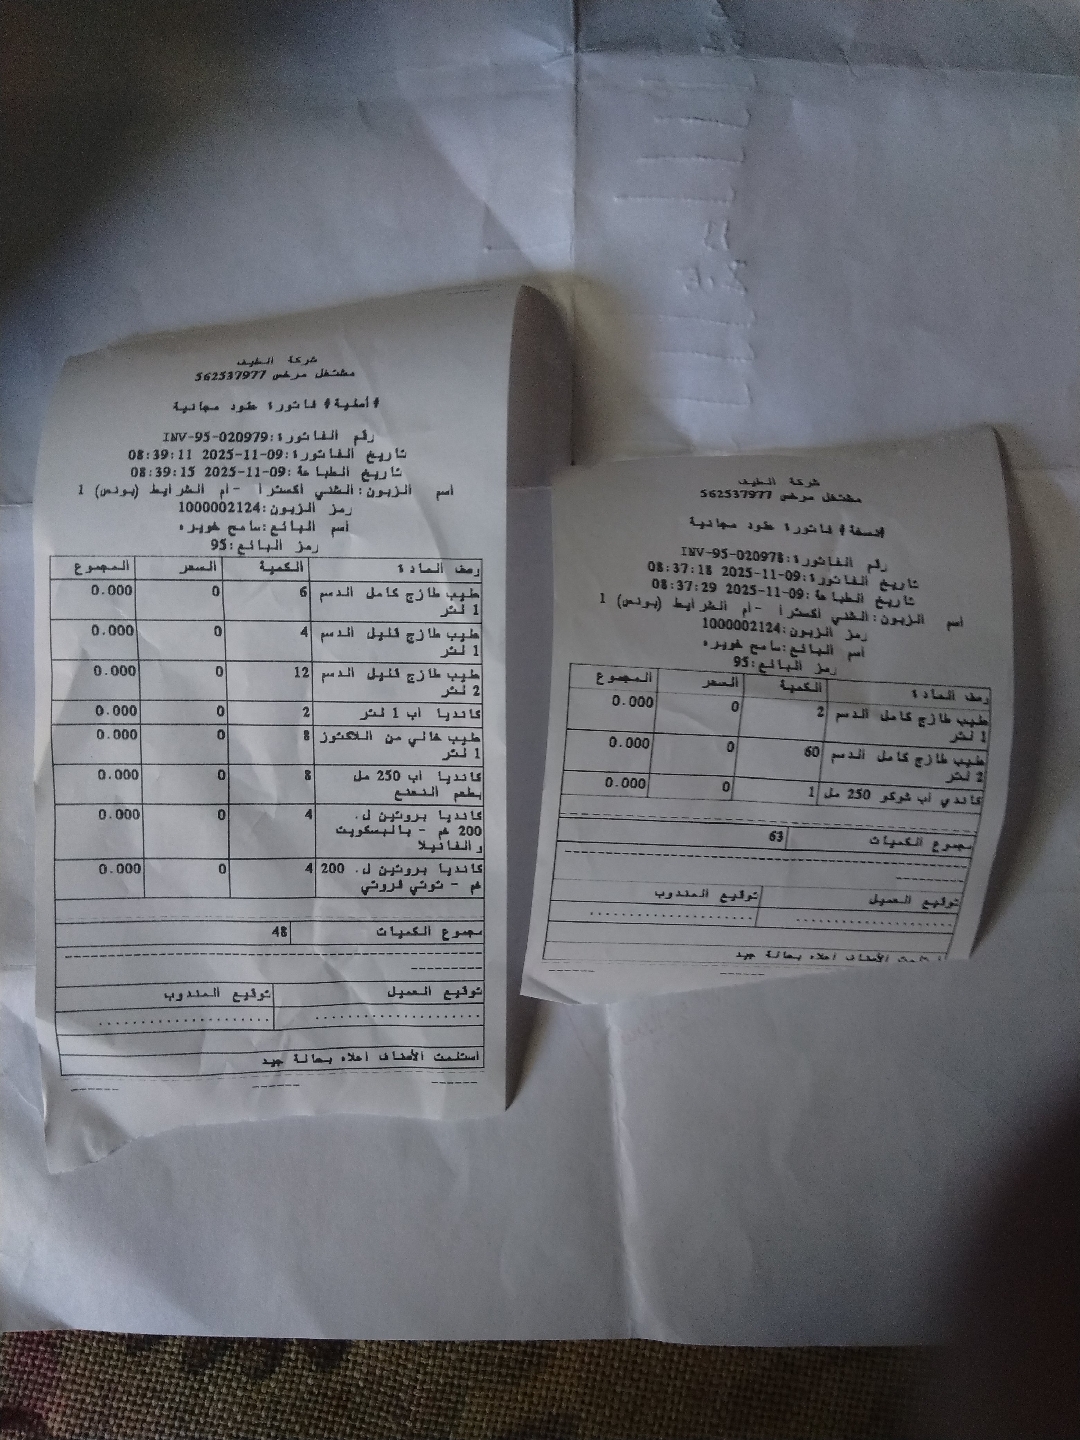 شركة الطيف
مشتغل مرخص 562537977
#أصلية# فاتورة طود مجانية
رقم الفاتورة:INV-95-020979
تاريخ الفاتورة:09-11-2025 08:39:11
تاريخ الطباعة:09-11-2025 08:39:15
أسم الزبون:الشني أكسترا - أم الشرايط (بونص) 1
رمز الزبون:1000002124
أسم البائع:سامح خويره
رمز البائع:95
وصف المادة الكمية السعر المجموع
حليب طازج كامل الدسم 6 0 0.000
1 لتر
حليب طازج قليل الدسم 4 0 0.000
1 لتر
حليب طازج قليل الدسم 12 0 0.000
2 لتر
كانديا أب 1 لتر 2 0 0.000
حليب خالي من اللاكتوز 8 0 0.000
1 لتر
كانديا أب 250 مل 8 0 0.000
بطعم النعنع
كانديا بروتين ل. 4 0 0.000
200 غم - بالبسكويت
والفانيلا
كانديا بروتين ل. 200 4 0 0.000
غم - توتي فروتي
مجموع الكميات 48
توقيع العميل توقيع المندوب
أستلمت الأصناف أعلاه بحالة جيد
شركة الطيف
مشتغل مرخص 562537977
#نسخة# فاتورة طود مجانية
رقم الفاتورة:INV-95-020978
تاريخ الفاتورة:09-11-2025 08:37:18
تاريخ الطباعة:09-11-2025 08:37:29
أسم الزبون:الشني أكسترا - أم الشرايط (بونص) 1
رمز الزبون:1000002124
أسم البائع:سامح خويره
رمز البائع:95
وصف المادة الكمية السعر المجموع
حليب طازج كامل الدسم 2 0 0.000
1 لتر
حليب طازج كامل الدسم 60 0 0.000
2 لتر
كاندي أب شوكو 250 مل 1 0 0.000
مجموع الكميات 63
توقيع العميل توقيع المندوب
أستلمت الأصناف أعلاه بحالة جيد